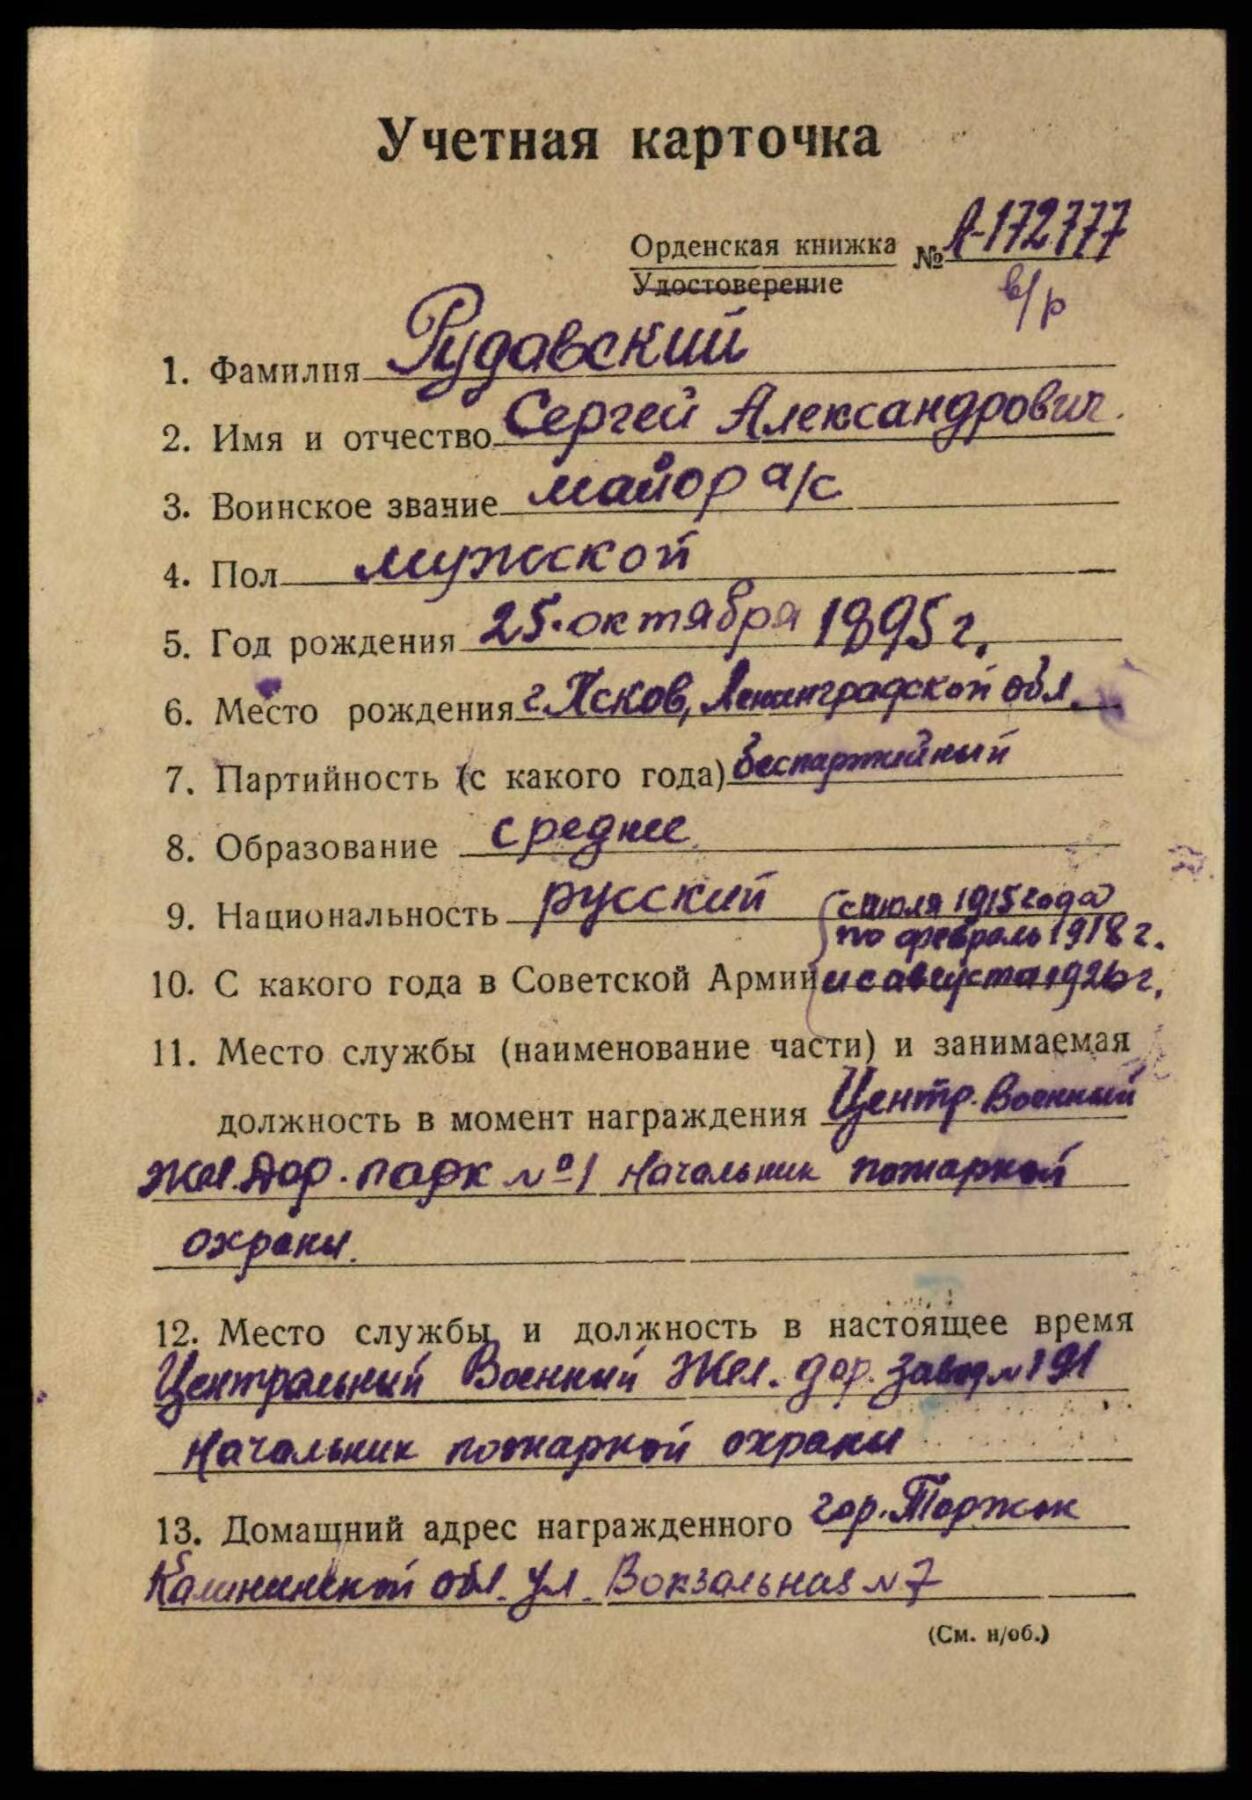 Учетная карточка
Орденская книжка № А-172777
Удостоверение
в/р
1. Фамилия Рудавский
2. Имя и отчество Сергей Александрович.
3. Воинское звание майор а/с
4. Пол мужской
5. Год рождения 25.октября 1895 г.
6. Место рождения г. Псков, Ленинградской обл.
7. Партийность (с какого года) беспартийный
8. Образование среднее
9. Национальность русский
с июля 1915 года
по февраль 1918 г.
10. С какого года в Советской Армии и с августа 1926 г.
11. Место службы (наименование части) и занимаемая
должность в момент награждения Центр. Военный
Жел. Дор. парк № 1 Начальник пожаркой
охраны.
12. Место службы и должность в настоящее время
Центральный Военный Жел. дор. завод № 191
Начальник пожаркой охраны
13. Домашний адрес награжденного гор. Торжок
Калининской обл. ул. Вокзальная № 7
(См. н/об.)